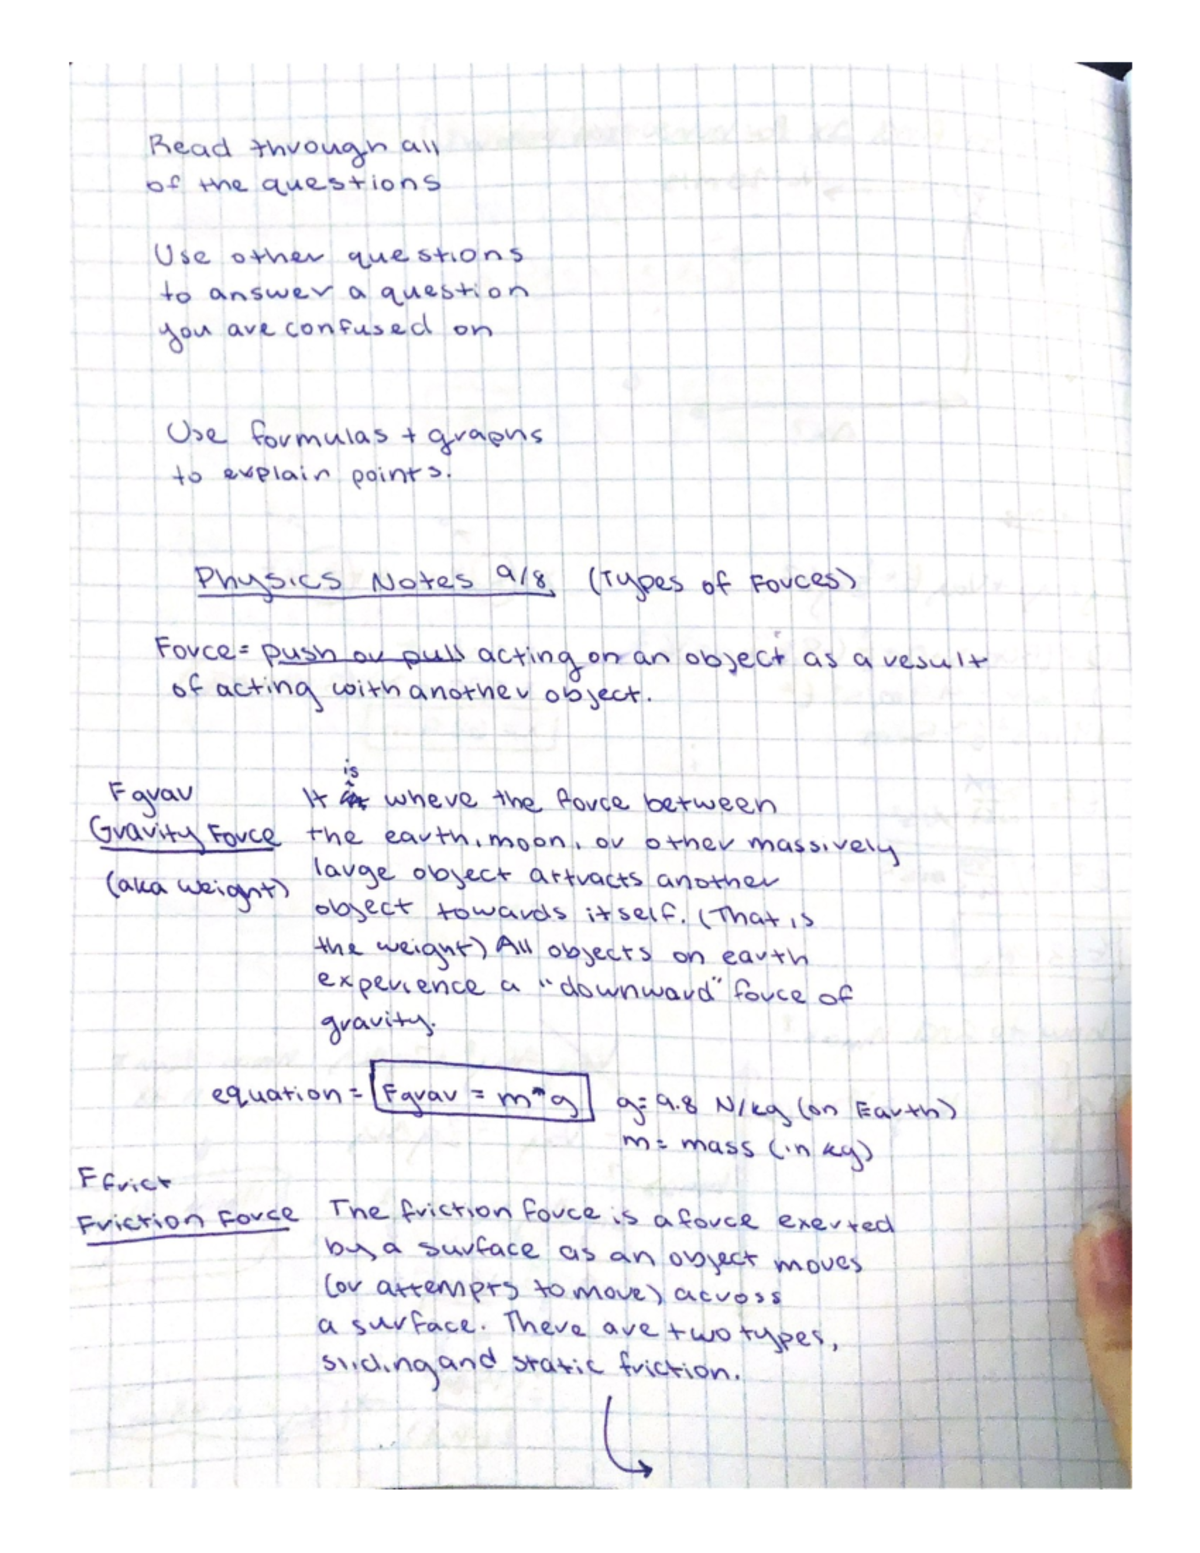 Read through all
of the questions
Use other questions
to answer a question
you are confused on
Use formulas + graphs
to explain points.
Physics Notes 9/8 (Types of Forces)
Force = push or pull acting on an object as a result
of acting with another object.
Fgrav
Gravity Force
(aka weight)
is
It where the force between
the earth, moon, or other massively
large object artracts another
object towards itself. (That is
the weight) All objects on earth
experience a "downward" force of
gravity.
equation = Fgrav = m*g
g= 9.8 N/kg (on Earth)
m= mass (in kg)
Ffrict
Friction Force
The friction force is a force exerted
by a surface as an object moves
(or attempts to move) across
a surface. There are two types,
sliding and static friction.